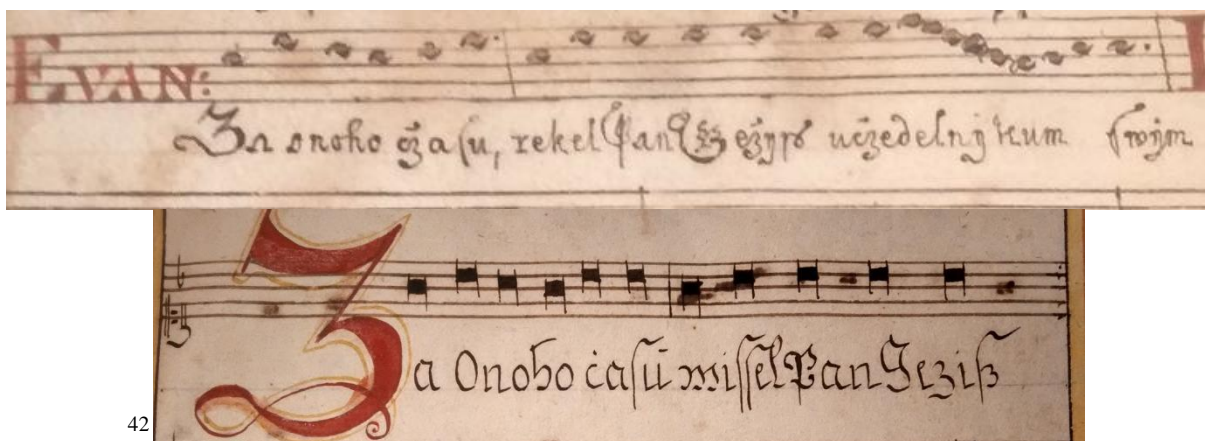 EVAN:
Za onoho cžasu, rekel Pan Gežyß učzedelnýkum swým
Za Onoho ċasu wissel Pan Geziß
42